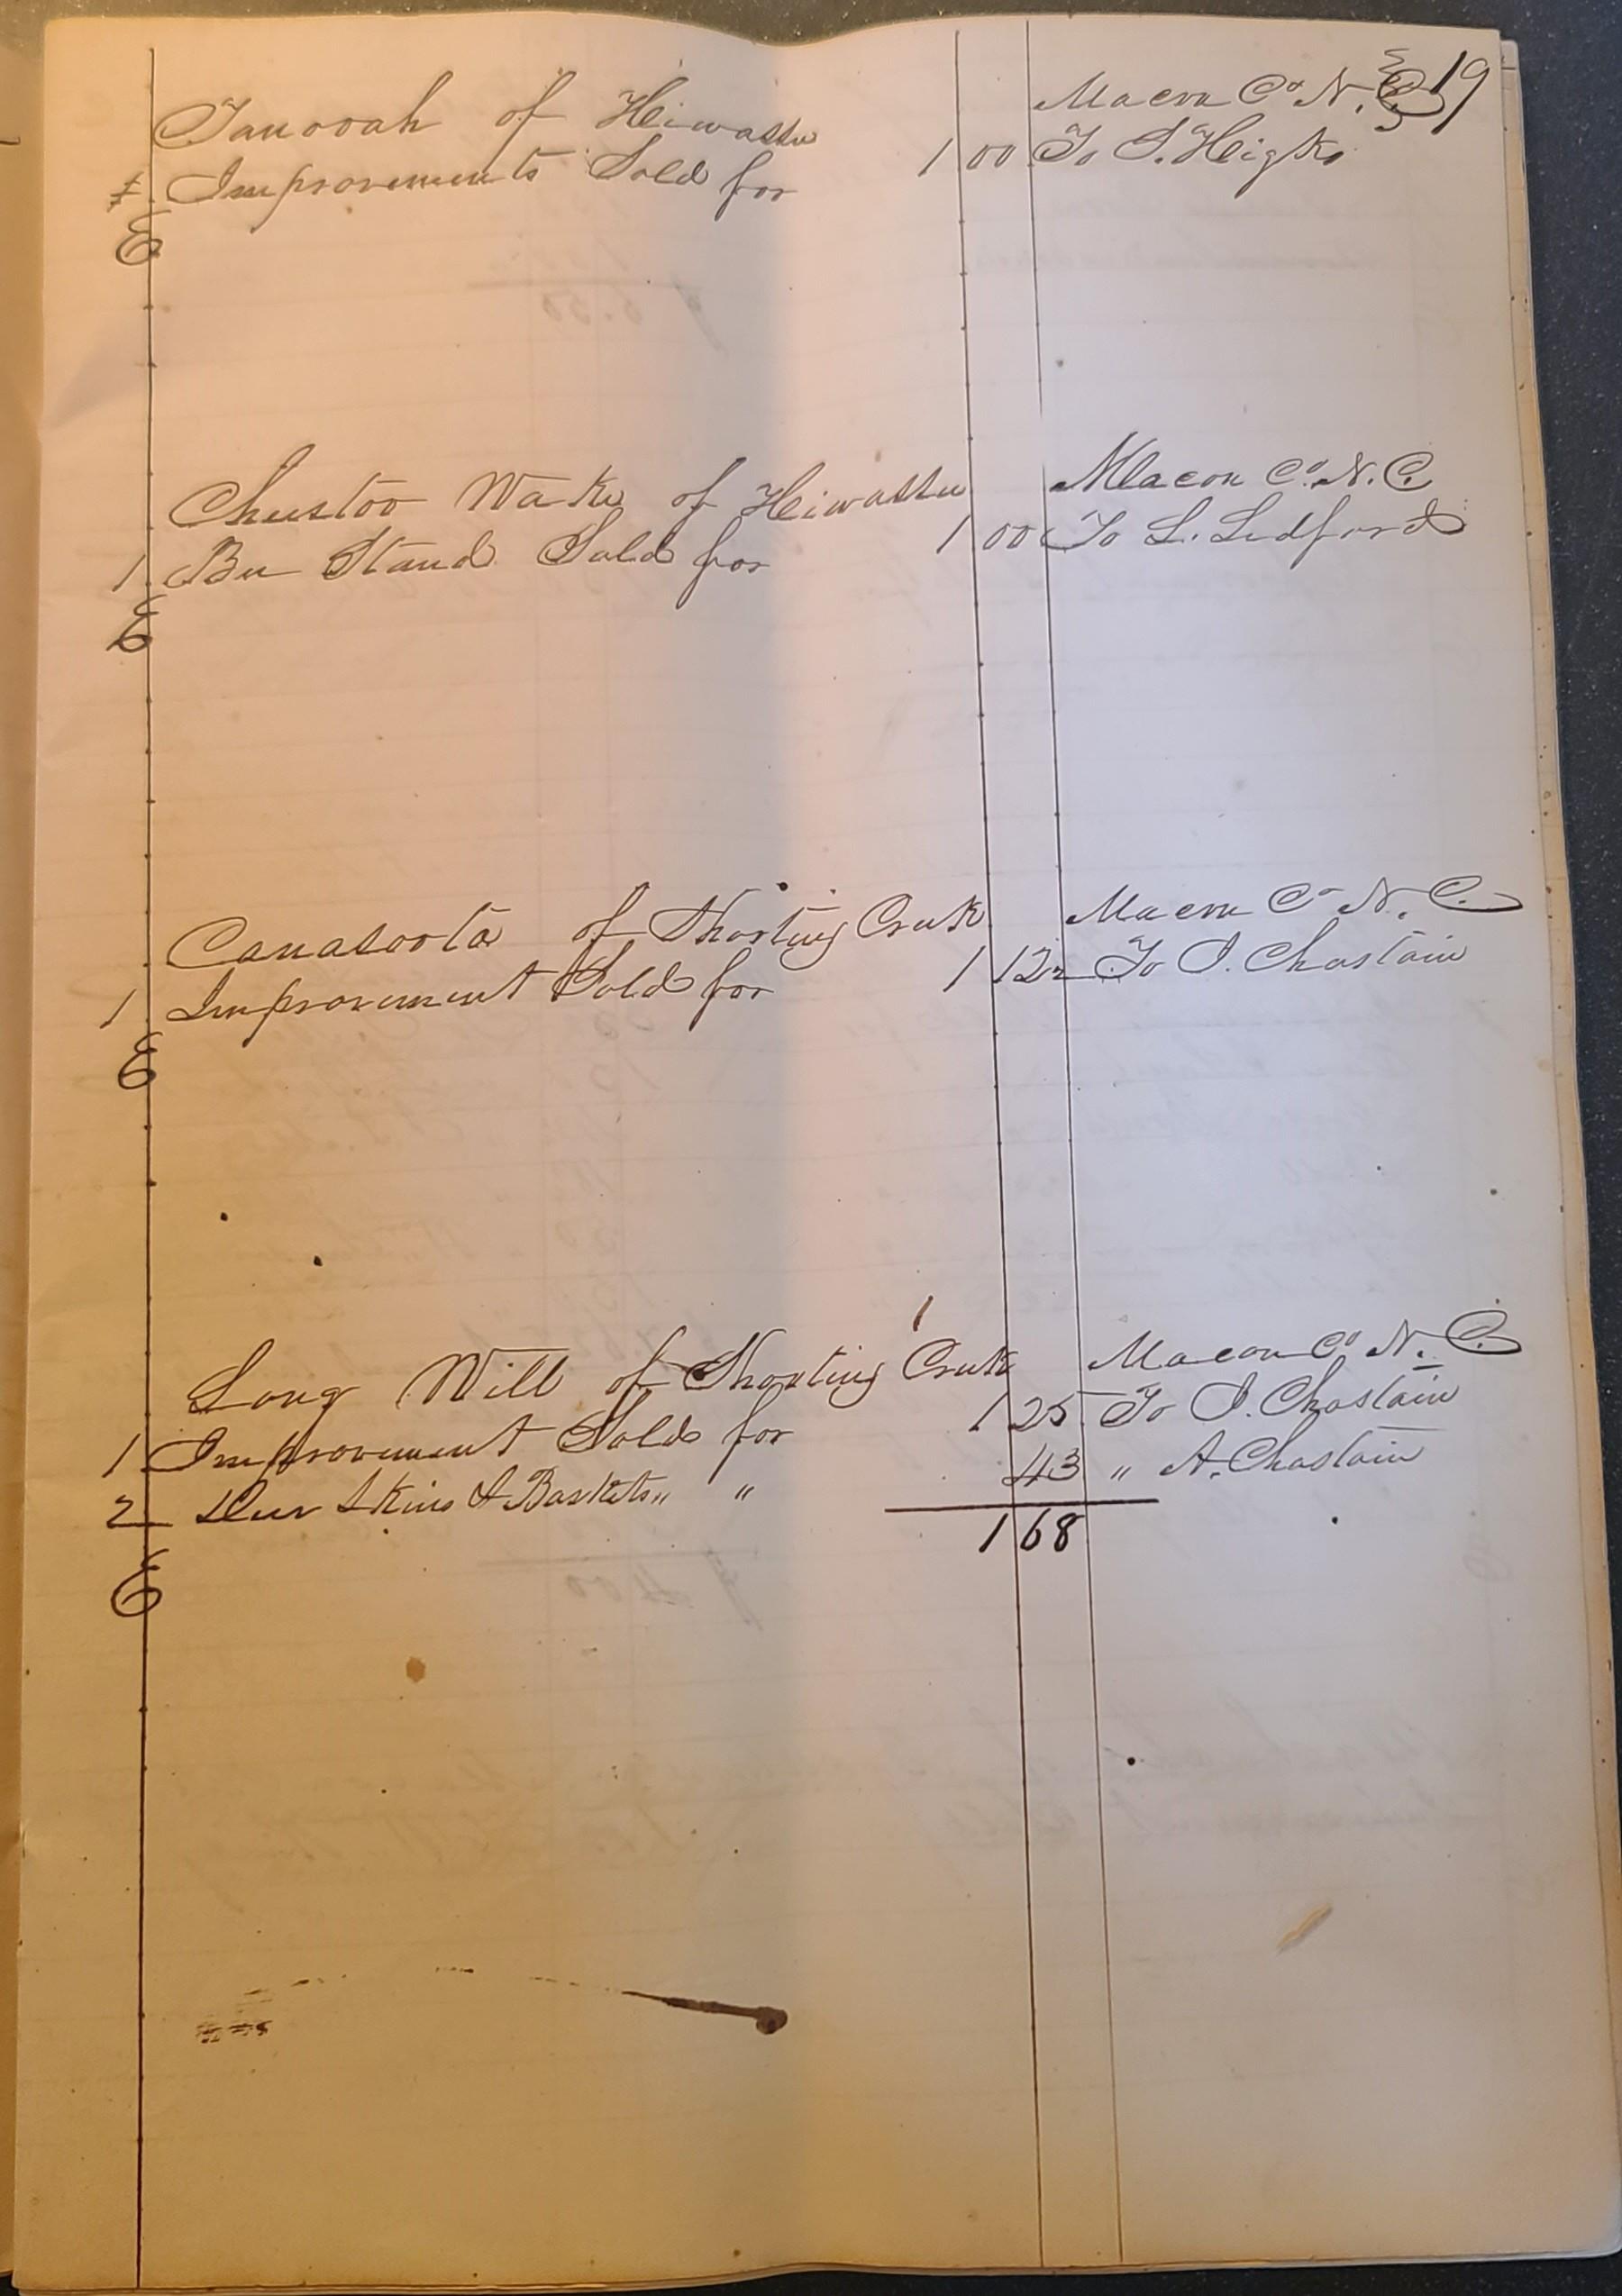 19
Tanooah of Heiwassee Macon Co N. C
Improvements Sold for 1 00 To S. Heigks
E
Chustoo Wake of Heiwassee Macon Co. N. C.
1 Bee Stand Sold for 1 00 To L. Ledford
E
Canasoota of Shooting Creek Macon Co N. C.
1 Improvement Sold for 1 12½ To I. Chastain
E
Long Will of Shooting Creek Macon Co N. C.
1 Improvement Sold for 1 25 To I. Chastain
2 Deer Skins & Baskets " " 43 " A. Chastain
1 68
E